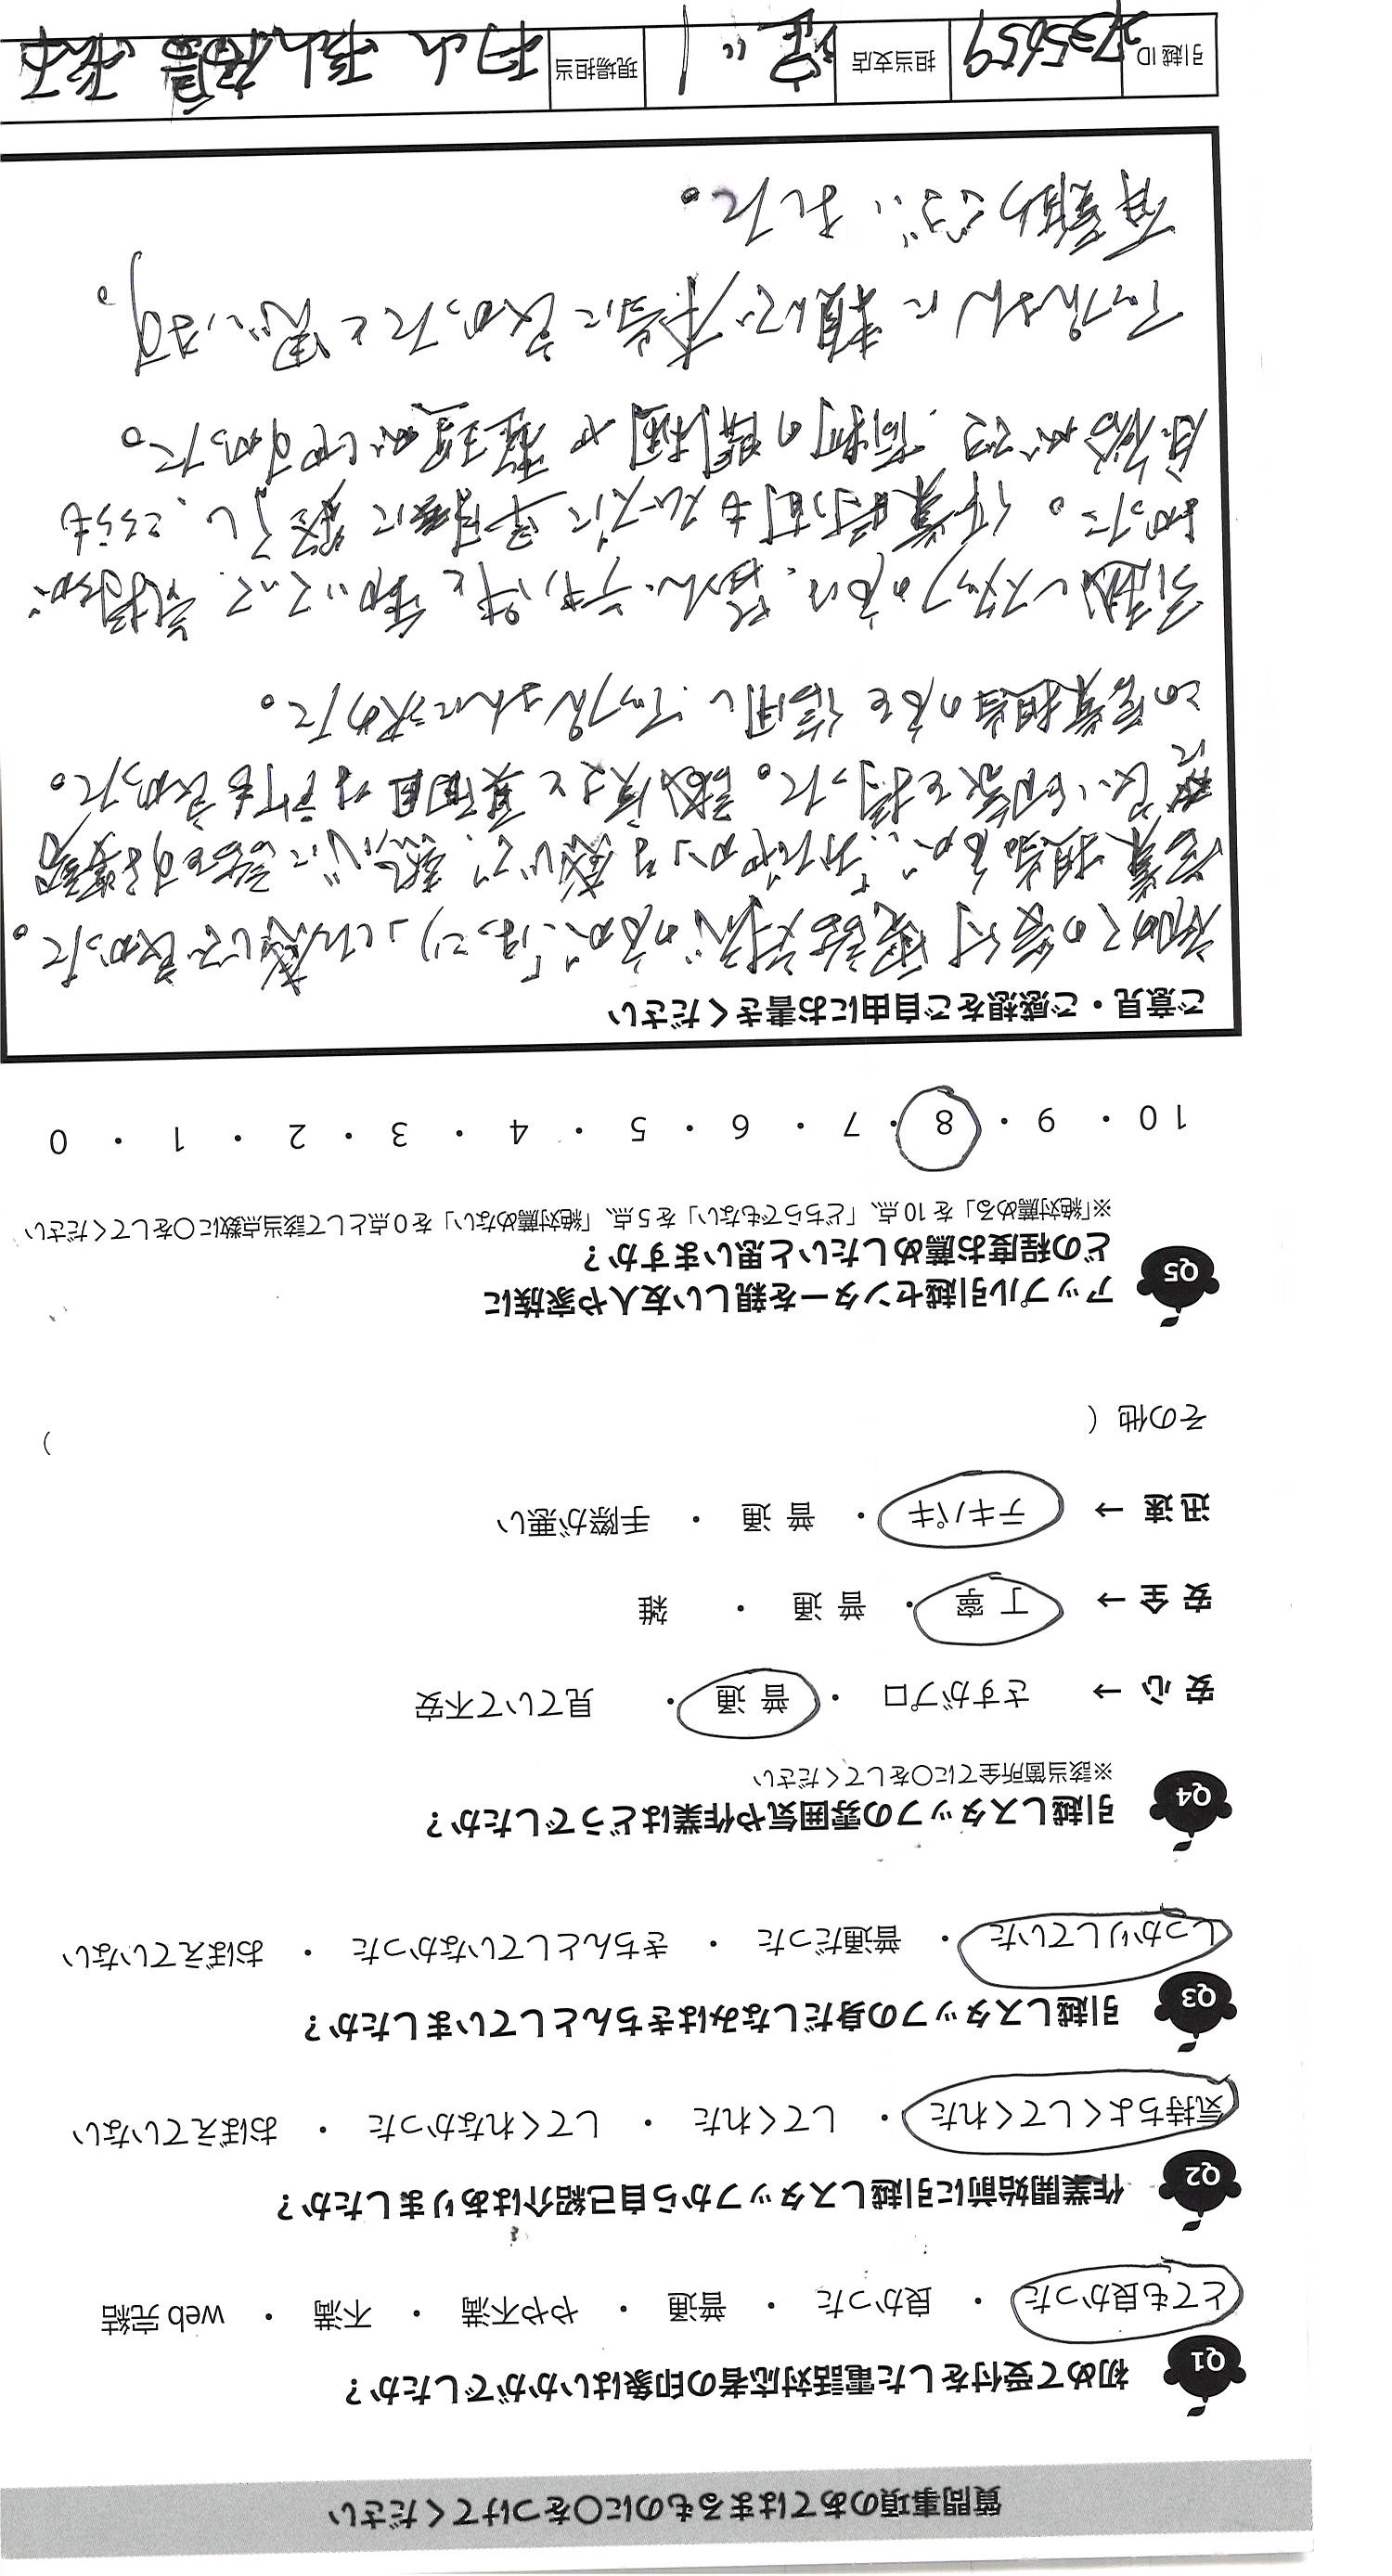 質問事項のあてはまるものに〇をつけてください
Q1 初めて受付をした電話対応者の印象はいかがでしたか？
とても良かった ・ 良かった ・ 普通 ・ やや不満 ・ 不満 ・ web完結
Q2 作業開始前に引越しスタッフから自己紹介はありましたか？
気持ちよくしてくれた ・ してくれた ・ してくれなかった ・ おぼえていない
Q3 引越しスタッフの身だしなみはきちんとしていましたか？
しっかりしていた ・ 普通だった ・ きちんとしていなかった ・ おぼえていない
Q4 引越しスタッフの雰囲気や作業はどうでしたか？
※該当箇所全てに〇をしてください
安心 → さすがプロ ・ 普通 ・ 見ていて不安
安全 → 丁寧 ・ 普通 ・ 雑
迅速 → テキパキ ・ 普通 ・ 手際が悪い
その他 ( )
Q5 アップル引越センターを親しい友人や家族に
どの程度お薦めしたいと思いますか？
※「絶対薦める」を10点、「どちらでもない」を5点、「絶対薦めない」を0点として該当点数に〇をしてください
10 ・ 9 ・ 8 ・ 7 ・ 6 ・ 5 ・ 4 ・ 3 ・ 2 ・ 1 ・ 0
ご意見・ご感想をご自由にお書きください
初めての受付電話対応の方が、「はっきり」した感じで良かった。
営業担当の方が、おだやかな感じで、熱心に話をする姿勢
に良い印象を持った。誠実さと真面目な所も良かった。
この営業担当の方を信用し、アップルさんに決めた。
引越しスタッフの方は、皆さん、テキパキと動いていて、気持ちが
良かった。作業時間もスムーズに早目に終了し、こちらも
余裕ができ、荷物の開梱や整理がしやすかった。
アップルさんに頼んで本当に良かったと思います。
有難うございました。
引越ID 2735659 担当支店 現場担当